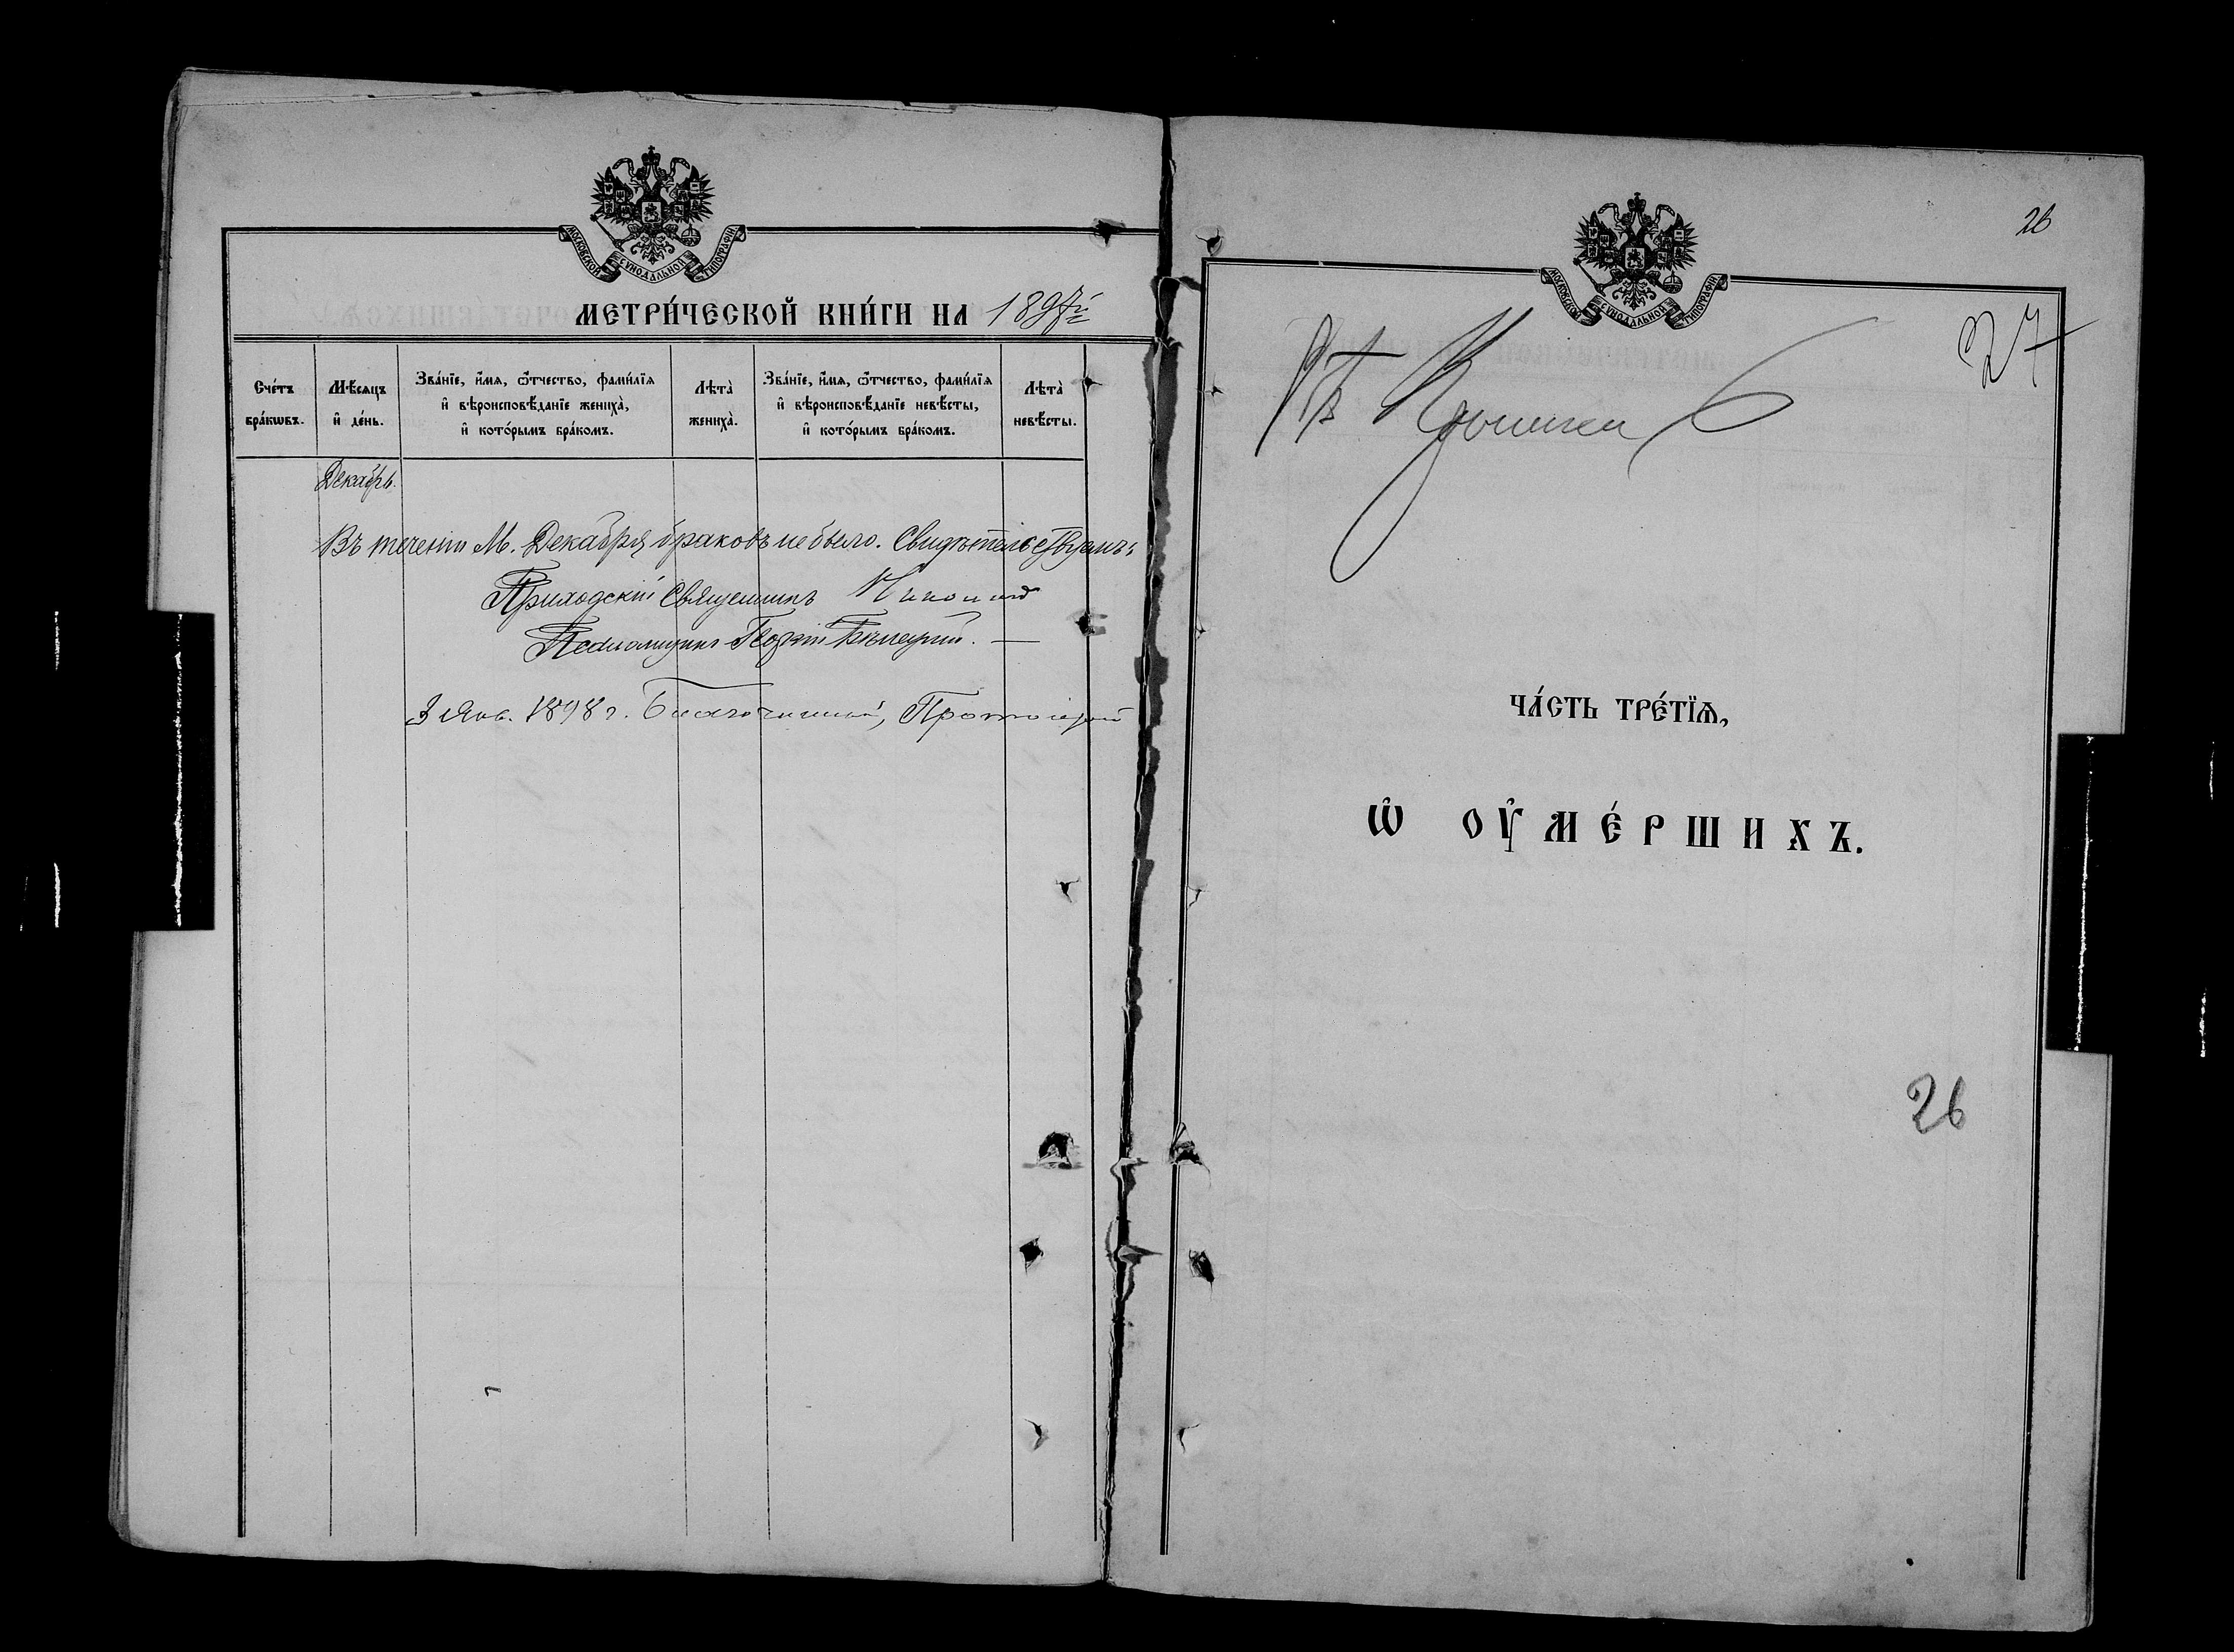 МОСКОВСКОЙ СѴНОДАЛЬНОЙ ТИПОГРАФІИ
МЕТРИ́ЧЕСКОЙ КНИ́ГИ НА 1897й
Сче́тъ бра́кѡвъ.
Мѣ́сяцъ и҆ де́нь.
Зва́нїе, и҆́мѧ, ѻ҆́тчество, фами́лїѧ и҆ вѣроисповѣ́данїе жениха̀, и҆ кото́рымъ бра́комъ.
Лѣта̀ жениха̀.
Зва́нїе, и҆́мѧ, ѻ҆́тчество, фами́лїѧ и҆ вѣроисповѣ́данїе невѣ́сты, и҆ кото́рымъ бра́комъ.
Лѣта̀ невѣ́сты.
Декабрь.
Въ теченіи М. Декабря браковъ не было. Свидѣтельствуемъ:
Приходскій Священникъ
Псаломщикъ Георгій
3 Янв. 1898 г. Благочинный, Протоіерей
26
МОСКОВСКОЙ СѴНОДАЛЬНОЙ ТИПОГРАФІИ
27
ЧА́СТЬ ТРЕ́ТЇѦ,
Ѡ҆ ОУ҆МЕ́РШИХЪ.
26